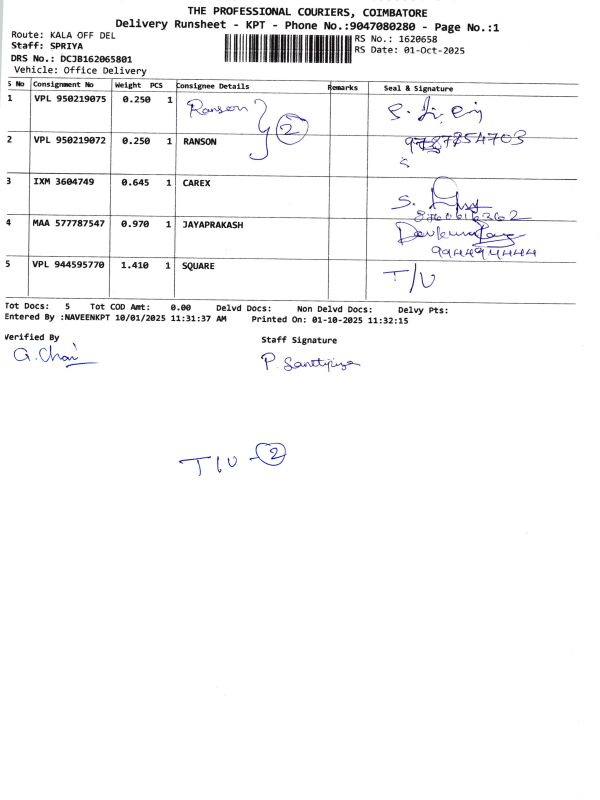 THE PROFESSIONAL COURIERS, COIMBATORE
Delivery Runsheet - KPT - Phone No.:9047080280 - Page No.:1
Route: KALA OFF DEL
RS No.: 1620658
Staff: SPRIYA
RS Date: 01-Oct-2025
DRS No.: DCJB162065801
Vehicle: Office Delivery
S No Consignment No Weight PCS Consignee Details Remarks Seal & Signature
1 VPL 950219075 0.250 1 Ranson 2
2 VPL 950219072 0.250 1 RANSON
3 IXM 3604749 0.645 1 CAREX S.
4 MAA 577787547 0.970 1 JAYAPRAKASH
9944944444
5 VPL 944595770 1.410 1 SQUARE T/U
Tot Docs: 5 Tot COD Amt: 0.00 Delvd Docs: Non Delvd Docs: Delvy Pts:
Entered By :NAVEENKPT 10/01/2025 11:31:37 AM Printed On: 01-10-2025 11:32:15
Verified By Staff Signature
G.Chai P. Santtpiya
T/U - 2